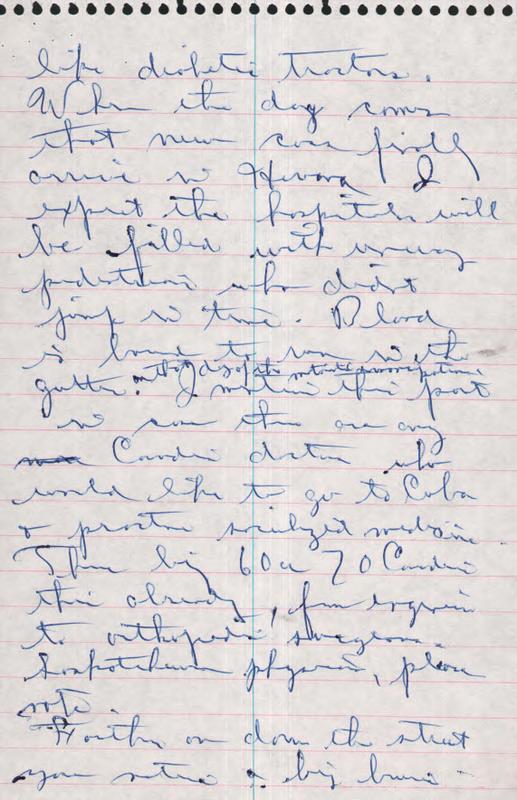 like diabetic tractors.
When the day comes
that new cars finally
arrive in Havana I
expect the hospitals will
be filled with unwary
pedestrians who didn't
jump in time. Blood
is bound to run in the
on the day of the
gutters. I mention this part
in case there are any
Canadian doctors who
would like to go to Cuba
& practise socialized medicine.
There being 60 or 70 Canadians
there already, from
to orthopedic surgeons.
Saskatchewan physicians, please
note.
Farther on down the street
you notice a big